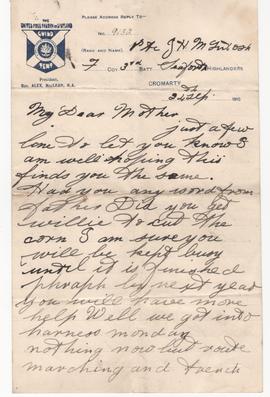 PLEASE ADDRESS REPLY TO—
THE
UNITED FREE CHURCH OF SCOTLAND
GUILD
TENT
No. 9153
(RANK AND NAME) Pte J H McIntosh
President,
Rev. ALEX. MacLEAN, M.A.
F Coy 3rd BATT. Seaforth HIGHLANDERS
CROMARTY
191
My Dear Mother
just a few
line to let you know I
am well hoping this
finds you the same.
Have you any word from
father Did you get
willie to cut the
corn I am sure you
will be kept busy
until it is finished
next year
you will have more
help Well we got into
harness monday
nothing now but route
marching and trench